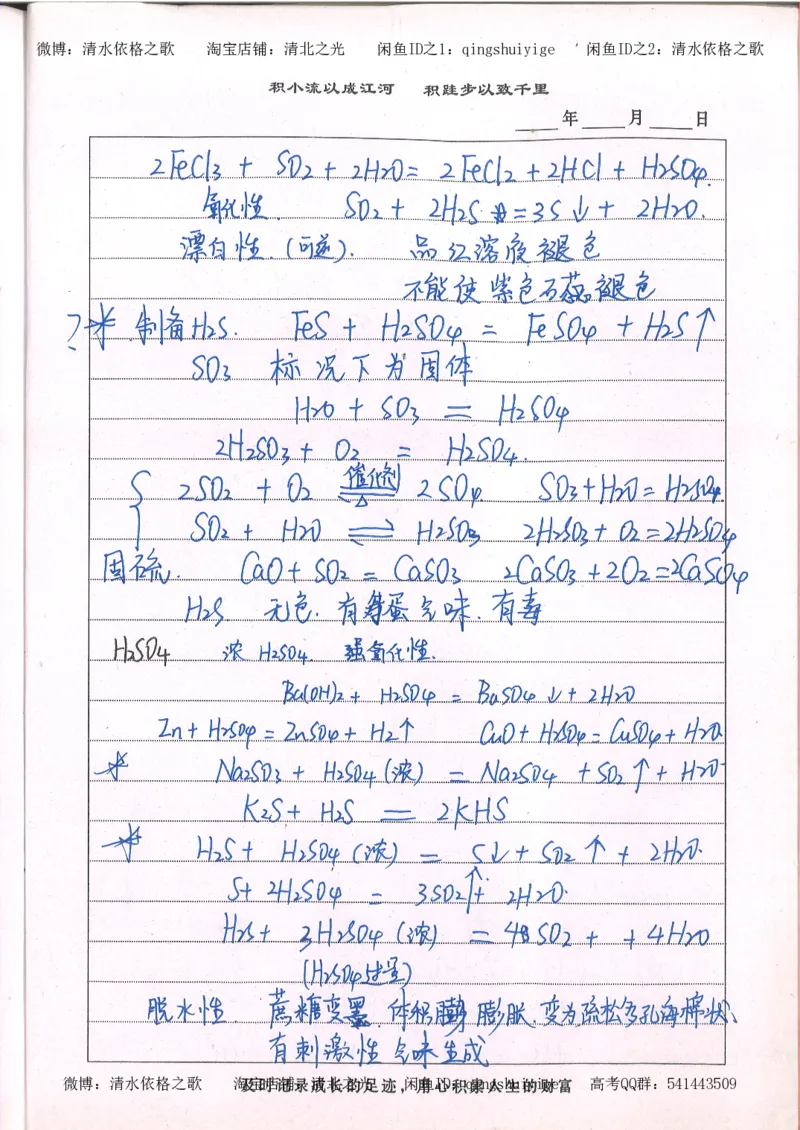 微博：清水依格之歌 淘宝店铺：清北之光 闲鱼ID之1：qingshuiyige 闲鱼ID之2：清水依格之歌
积小流以成江河 积跬步以致千里
年 月 日
2FeCl3 + SO2 + 2H2O = 2FeCl2 + 2HCl + H2SO4.
氧化性. SO2 + 2H2S = 3S↓ + 2H2O.
漂白性.(可逆). 品红溶液褪色
不能使紫色石蕊褪色
?* 制备H2S. FeS + H2SO4 = FeSO4 + H2S↑
SO3 标况下为固体
H2O + SO3 = H2SO4
2H2SO3 + O2 = H2SO4.
2SO2 + O2 ⇌ 催化剂 △ 2SO4. SO3 + H2O = H2SO4.
SO2 + H2O ⇌ H2SO3 2H2SO3 + O2 = 2H2SO4
固硫. CaO + SO2 = CaSO3 2CaSO3 + 2O2 = 2CaSO4
H2S. 无色. 有臭蛋气味. 有毒
H2SO4 浓 H2SO4. 强氧化性.
Ba(OH)2 + H2SO4 = BaSO4↓ + 2H2O
Zn + H2SO4 = ZnSO4 + H2↑ CuO + H2SO4 = CuSO4 + H2O
* Na2SO3 + H2SO4(浓) = Na2SO4 + SO2↑ + H2O
K2S + H2S = 2KHS
* H2S + H2SO4(浓) = S↓ + SO2↑ + 2H2O.
S + 2H2SO4 = 3SO2↑ + 2H2O.
H2S + 3H2SO4(浓) = 4SO2 + + 4H2O
(H2SO4过量)
脱水性. 蔗糖变黑. 体积膨胀. 变为疏松多孔海棉状、
有刺激性气味生成
及时记录成长的足迹，用心积累人生的财富
微博：清水依格之歌 淘宝店铺：清北之光 闲鱼ID：qingshuiyige 高考QQ群：541443509